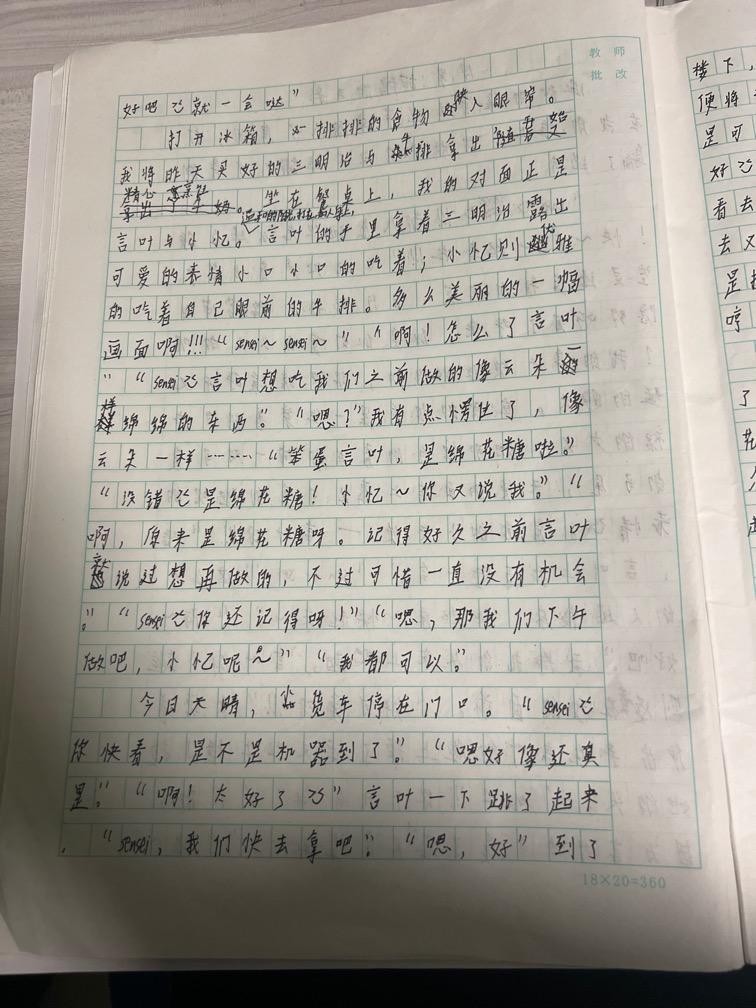 教师
批改
好吧~就一会哒”
打开冰箱，一排排的食物映入眼帘。
我将昨天买好的三明治与牛排拿出
精心
拿出了
坐在餐桌上，我的对面正是
言叶与小忆。言叶的手里拿着三明治露出
可爱的表情小口小口的吃着；小忆则优雅
的吃着自己眼前的牛排。多么美丽的一幅
画面啊!!!“sensei～sensei～”“啊！怎么了言叶
”“sensei~言叶想吃我们之前做的像云朵一
样绵绵的东西。”“嗯？”我有点愣住了，像
云朵一样……“笨蛋言叶，是绵花糖啦。”
“没错~是绵花糖！小忆～你又说我。”“
啊，原来是绵花糖呀。记得好久之前言叶
就说过想再做的，不过可惜一直没有机会
。”“sensei~你还记得呀！”“嗯，那我们下午
做吧，小忆呢～”“我都可以。”
今日天晴，货车停在门口。“sensei~
你快看，是不是机器到了。”“嗯好像还真
是。”“啊！太好了~”言叶一下跳了起来
.“sensei，我们快去拿吧。”“嗯，好”到了
18×20=360
楼下，
便将
是可
好
看去
去又
是
哼
了
花